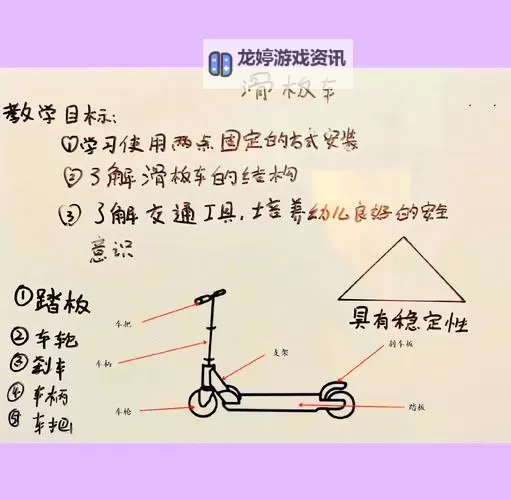 龙婷游戏资讯
滑板车
教学目标:
①学习使用两点固定的方式安装
②了解滑板车的结构
③了解交通工具,培养幼儿良好的安全
意识
①踏板
②车轮
③刹车
④车柄
⑤车把
车把
车柄
支架
车轮
具有稳定性
刹车板
踏板